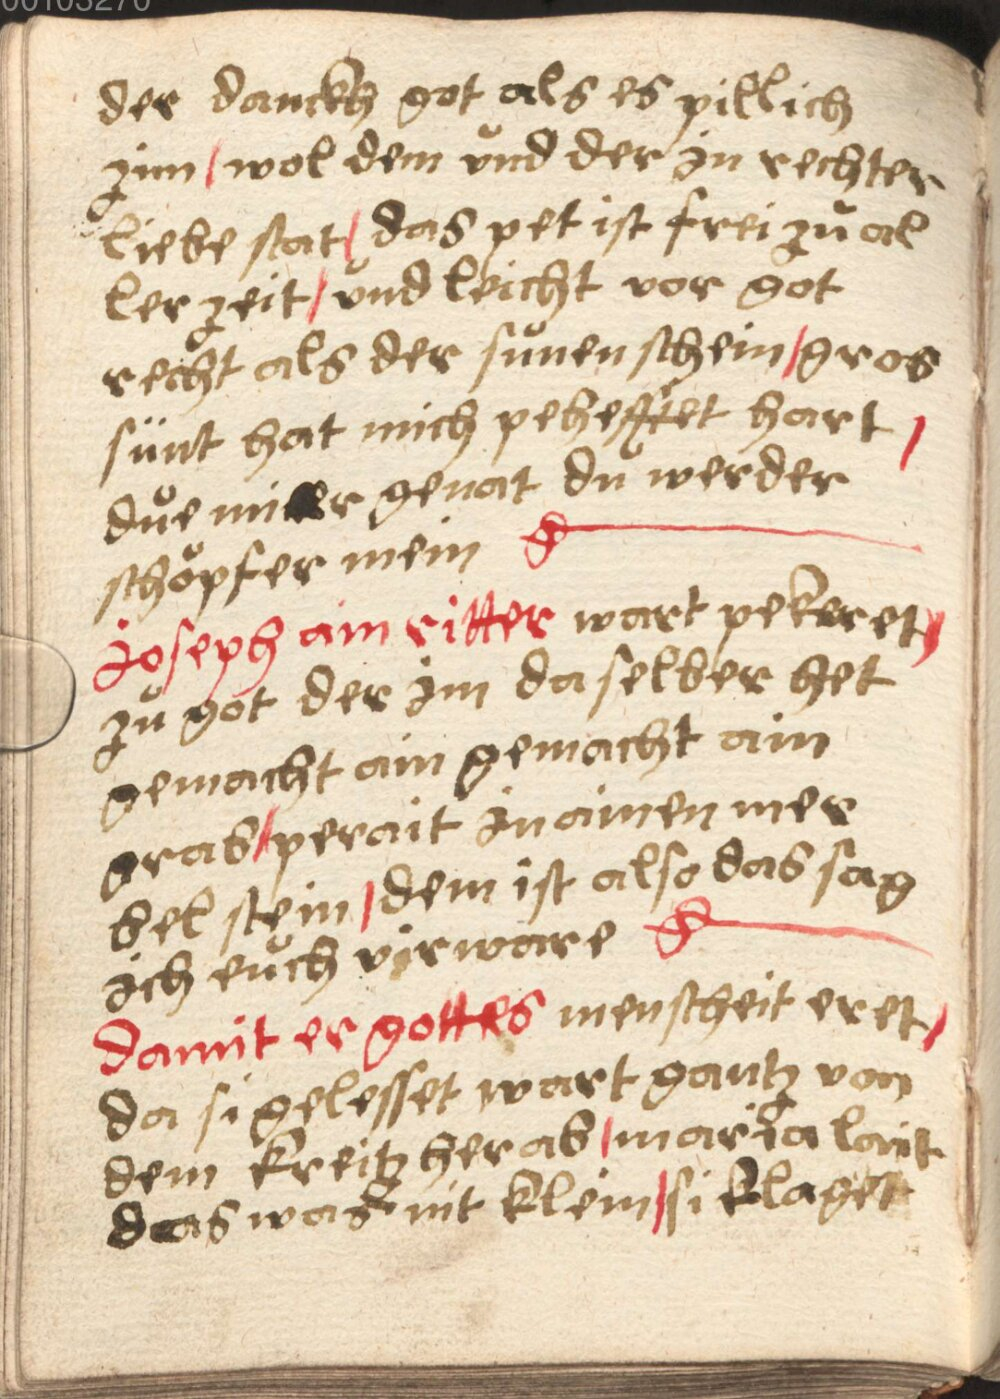 00103270
der danckh got als es pillich
zim / wol dem vnd der in rechter
liebe stat / das pet ist frei zů al
ler zeit / vnd leicht vor got
recht als der sůnen schein / gros
sünt hat mich pehefftet hart /
důe mier genat du werder
schöpfer mein
Joseph ain ritter wart pekeret /
zů got der im da selber het
gemacht ain gemacht ain
grab / perait in ainen mer
bel stein / dem ist also das sag
ich euch vir ware
Damit er gottes menscheit eret /
da si gelesset wart gantz von
dem kreitz her ab / maria lait
das was nit klein / si klaget